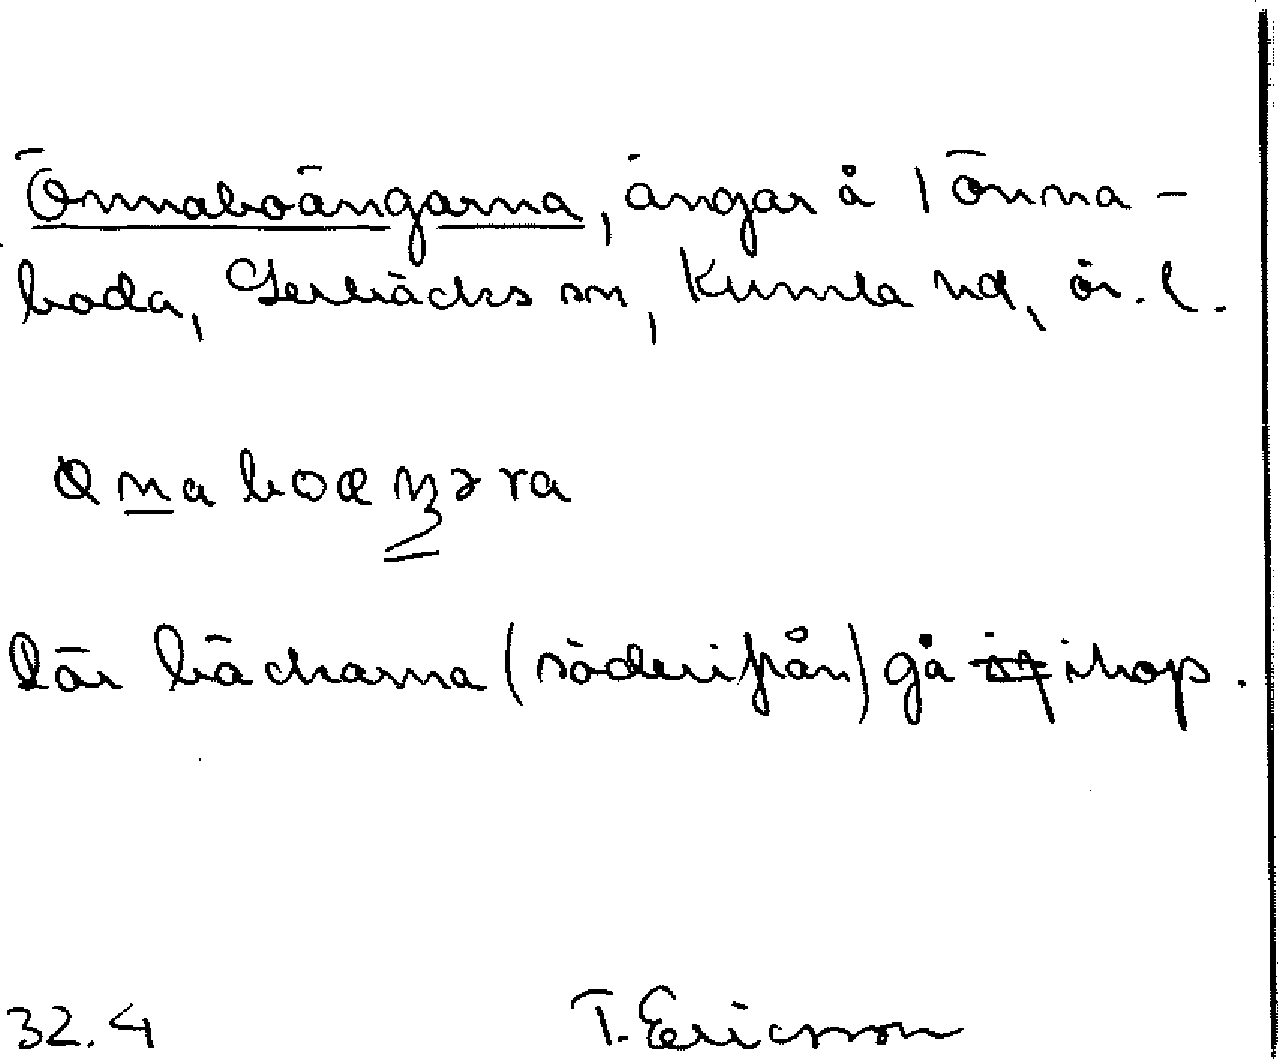 Önnaboängarna, ängar å 1 Önna-
boda, Lerbäcks sn, Kumla hd, Ör. l.
där bäckarna (söderifrån) gå ihop.
32.4 T. Ericsson